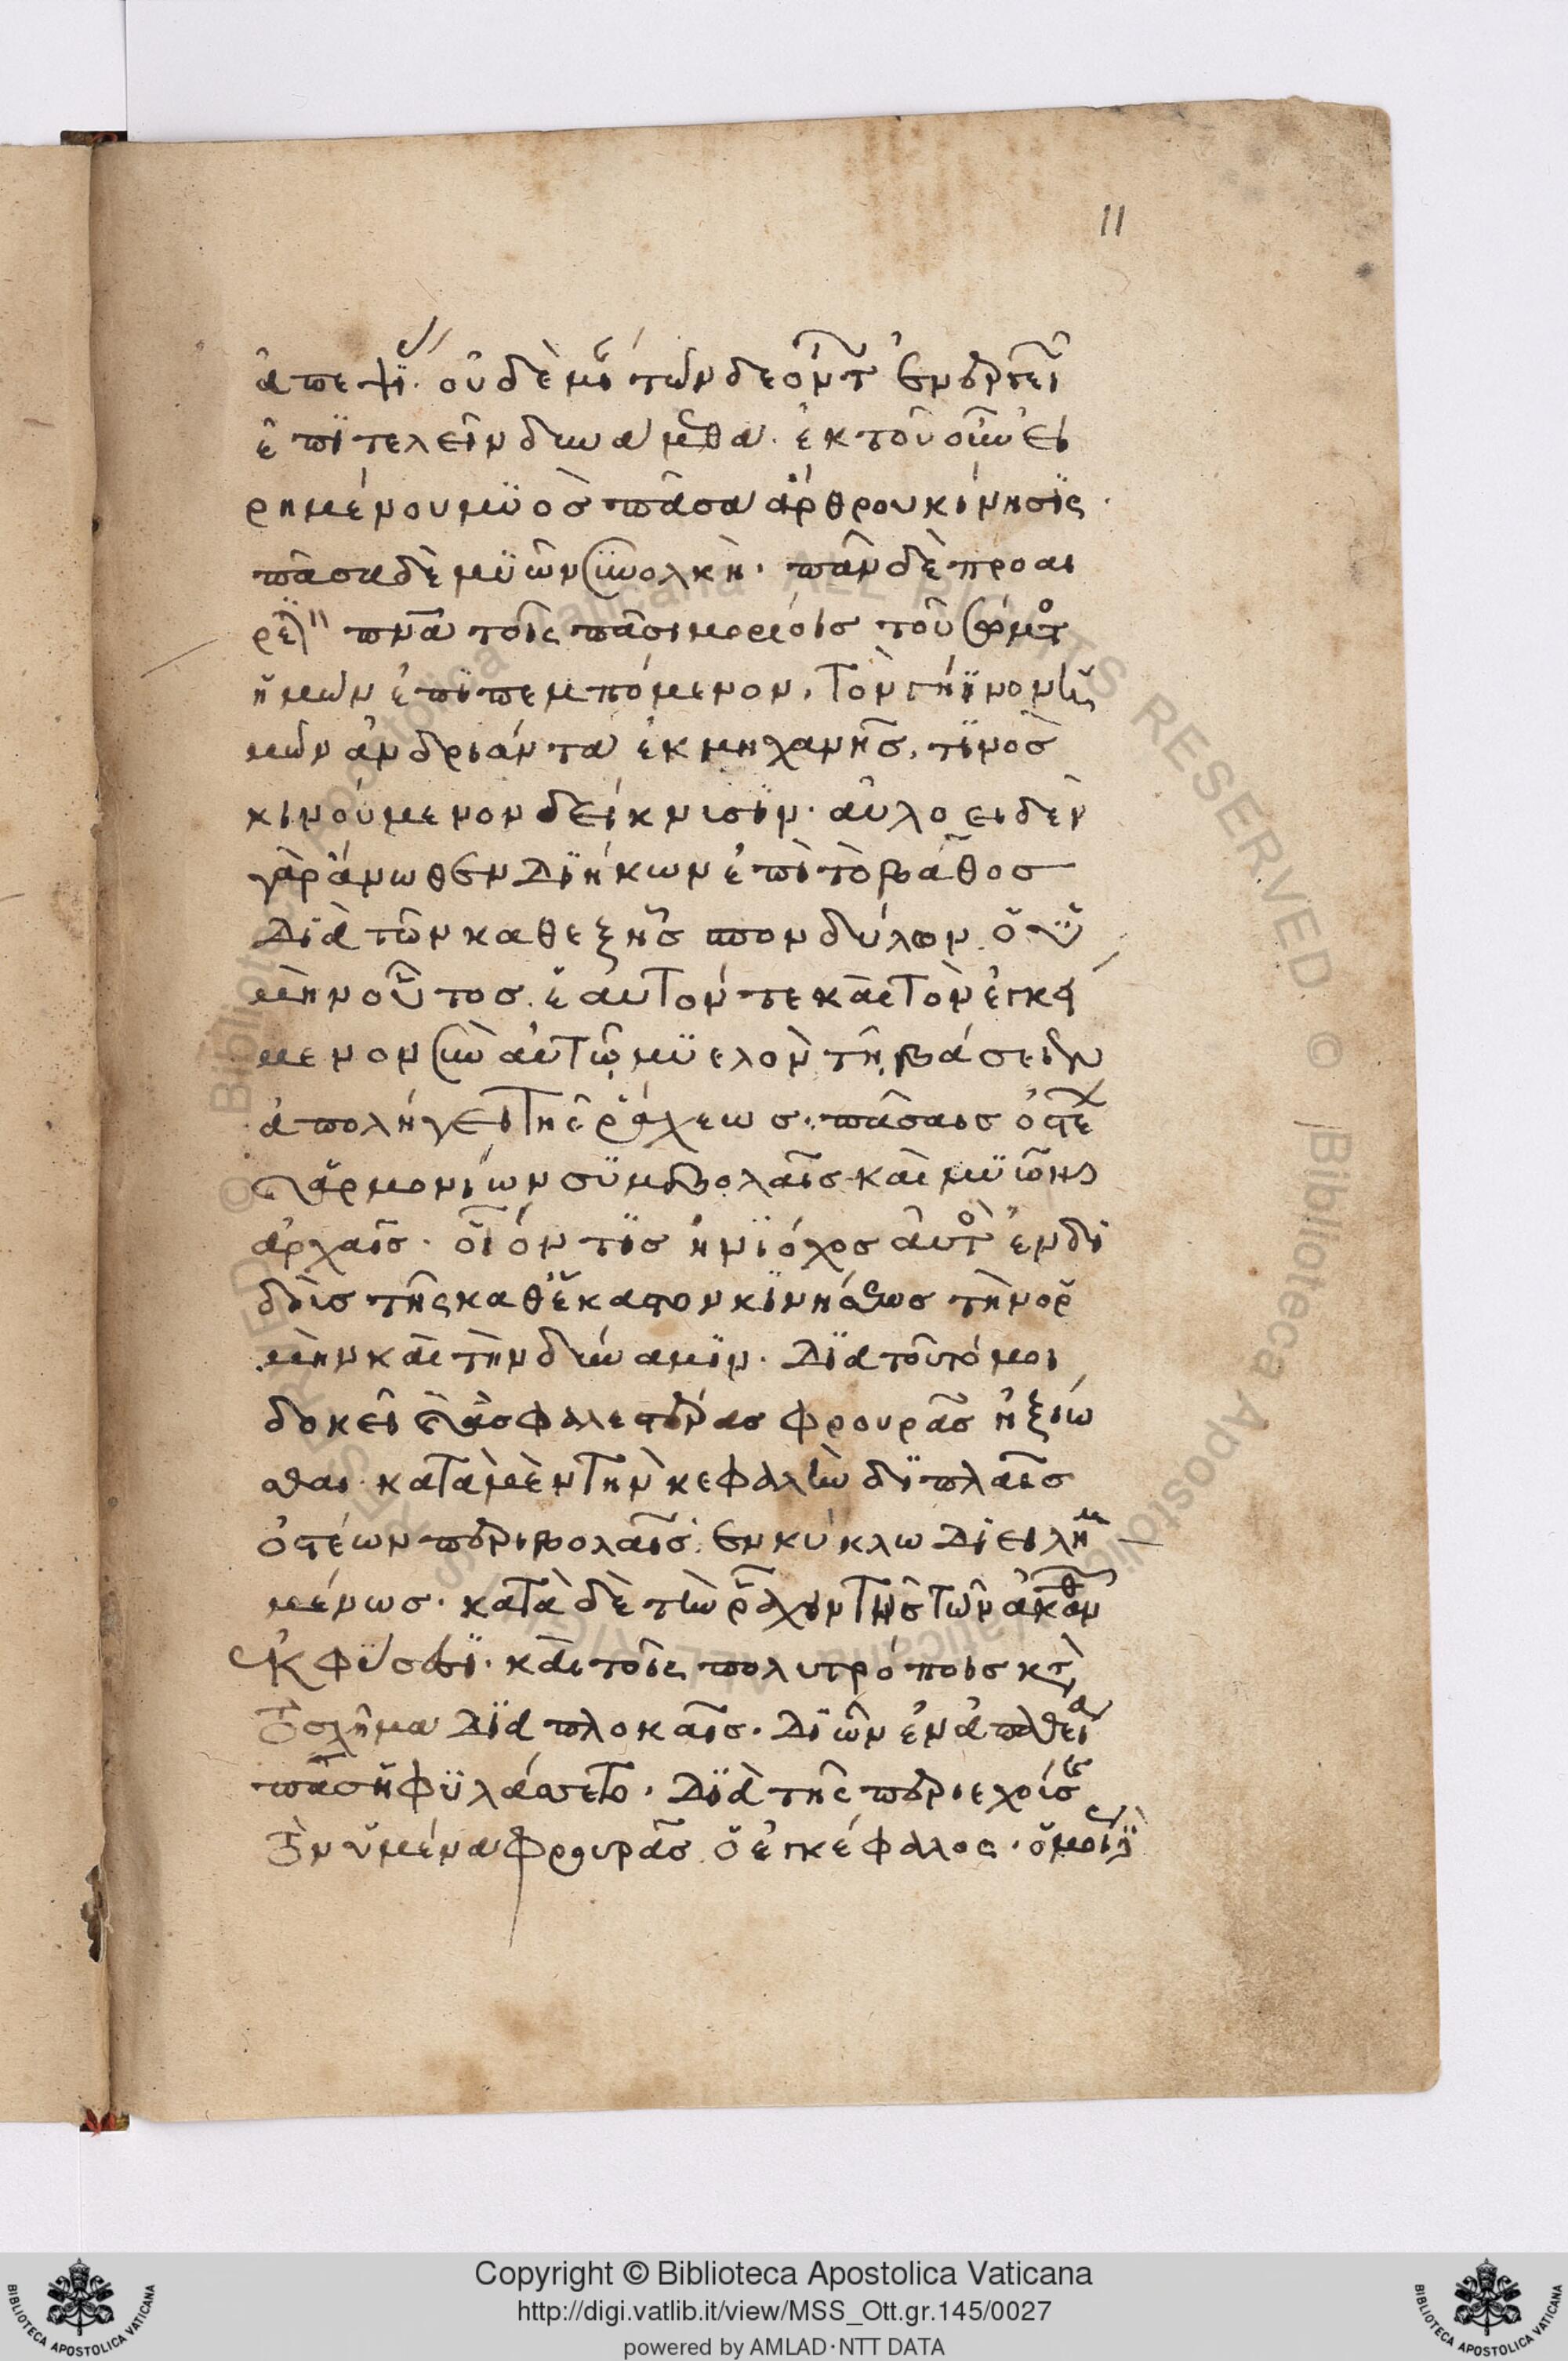 11
ἀπεψί. οὐδὲν τῶν δεόντ ἐνεργεῖ
ἐπιτελεῖν δυνάμεθα. ἐκ τοῦ οὖν εἰ
ρημένου μυὸς πᾶσα ἄρθρου κίνησις.
πᾶσα δὲ μυῶν συνολκή. πᾶν δὲ προαι
πνα τοῖς πᾶσι μορίοις τοῦ
ἡμῶν ἐπιπεμπόμενον. τὸν γήϊνον
μῶν ἀνδριάντα ἐκ μηχανῆς. τινὸς
κινούμενον δείκνισιν. αὐλοειδὲν
γὰρ ἄνωθεν διήκων ἐπὶ τὸ βάθος
διὰ τῶν καθεξῆς σπονδύλων.
μὴν οὗτος. ἑαυτόν τε καὶ τὸν ἐγκεί
μενον σὺν αὐτῷ μυελὸν τῇ βάσει
ἀπολήγει τῆς ῥάχεως. πάσαις ὀστέ
ἁρμονιῶν συμβολαῖς καὶ μυώνων
ἀρχαῖς. οἷόν τις ἡνίοχος αὐτὸ ἐνδι
δοὺς τῆς καθ' ἕκαστον κινήσεως τὴν ὁρ
μὴν καὶ τὴν δύναμιν. διὰ τοῦτό μοι
δοκεῖ ἀσφαλεστέρας φρουρᾶς ἠξιῶ
σθαι. κατὰ μὲν τὴν κεφαλὴν διπλαῖς
ὀστέων περιβολαῖς. ἐν κύκλω διειλημ
μένως. κατὰ δὲ τὴν ῥάχιν τῆς τῶν ἀκανθῶν
ἐκφύσει. καὶ τοῖς πολυτρόποις κτ
τὸ σχῆμα διαπλοκαῖς. δι' ὧν ἐν ἀπαθεία
πάσῃ φυλάσσεται. διὰ τῆς περιεχούσης
τὸν ὑμένα φρουρᾶς ὁ ἐγκέφαλος.
Copyright © Biblioteca Apostolica Vaticana
http://digi.vatlib.it/view/MSS_Ott.gr.145/0027
powered by AMLAD·NTT DATA